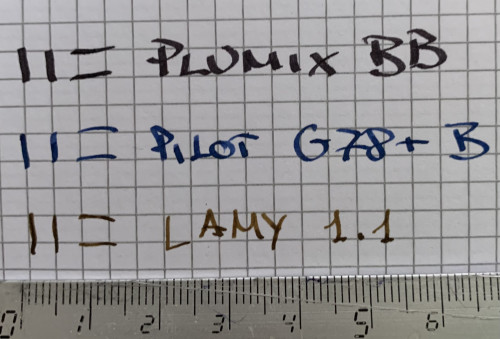 II= PLUMIX BB
II= PILOT G78+ B
II= LAMY 1.1
0 1 2 3 4 5 6